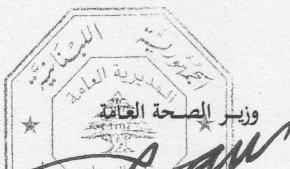 الجمهورية اللبنانية
المديرية العامة
وزير الصحة العامة